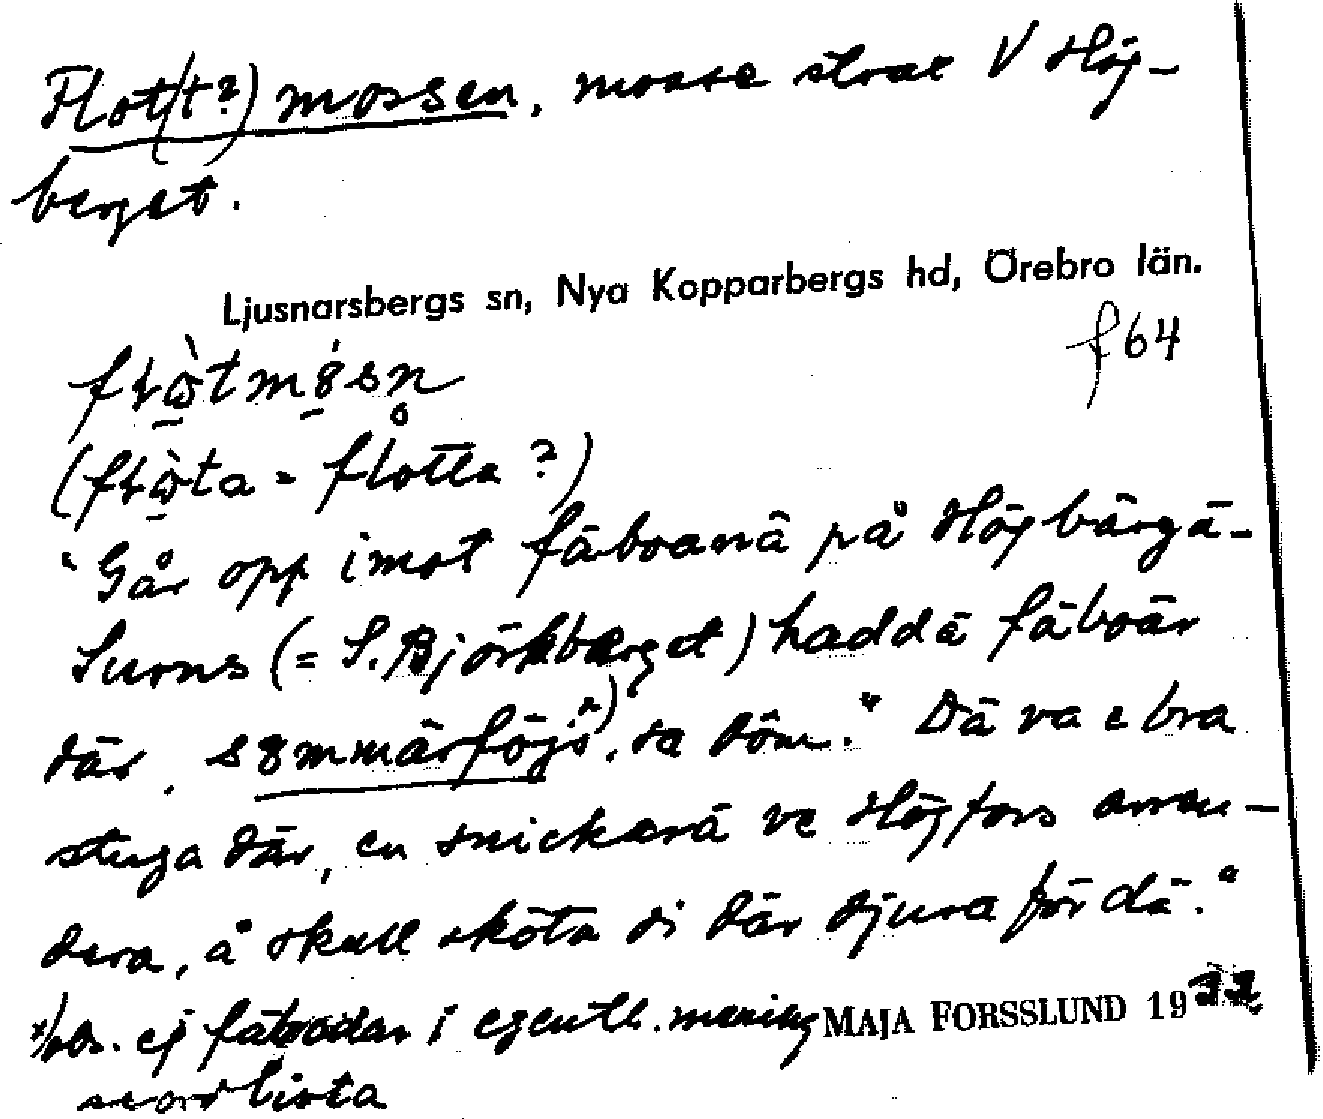 Flot(t?)mossen, mosse strax V Hög-
berget.
Ljusnarsbergs sn, Nya Kopparbergs hd, Örebro län.
f64
(= flotta ?)
"Går opp imot fäboanä på Högbärgä-
Surns (= S. Björkberget) haddä fäboär
där, sommärföjs x), sa döm." Dä va e bra
stuga där, en snickarä ve Högfors
å skull sköta di där djura för dä."
x) obs. ej fäbodar i egentl. mening
MAJA FORSSLUND 1932
se ordlista